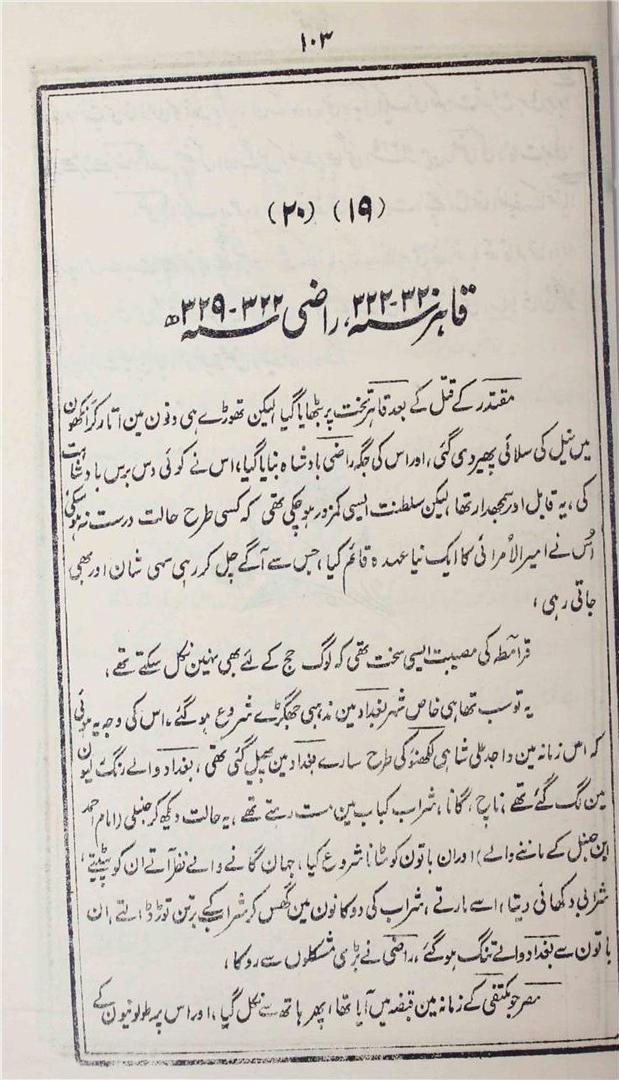 ۱۰۳
(۱۹) (۲۰)
قاہر سنہ ۳۲۰-۳۲۲، راضی سنہ ۳۲۲-۳۲۹ھ
مقتدر کے قتل کے بعد قاہر تخت پر بٹھایا گیا لیکن تھوڑے ہی دنون مین اتار کر آنکھون
میں نیل کی سلائی پھیر دی گئی، اور اس کی جگہ راضی بادشاہ بنایا گیا، اس نے کوئی دس برس بادشاہت
کی، یہ قابل اور سمجھدار تھا، لیکن سلطنت ایسی کمزور ہو چکی تھی کہ کسی طرح حالت درست نہ ہو سکی
اُس نے امیر الأمرائی کا ایک نیا عہدہ قائم کیا، جس سے آگے چل کر رہی سہی شان اور بھی
جاتی رہی،
قرامطہ کی مصیبت ایسی سخت تھی کہ لوگ حج کے لئے بھی نہین نکل سکتے تھے،
یہ تو سب تھا ہی خاص شہر بغداد مین مذہبی جھگڑے شروع ہو گئے، اس کی وجہ یہ ہوئی
کہ اس زمانہ مین واجد علی شاہی لکھنؤ کی طرح سارے بغداد مین پھیل گئی تھی، بغداد والے رنگ رلیون
مین لگ گئے تھے، ناچ، گانا، شراب کباب مین مست رہتے تھے، یہ حالت دیکھ کر حنبلی (امام احمد
ابن حنبل کے ماننے والے) اور ان باتون کو مٹانا شروع کیا، جہان گانے والے نظر آتے ان کو پیٹ دیتے،
شرابی دکھائی دیتا، اسے مارتے، شراب کی دوکانون مین گھس کر شراب کے برتن توڑ ڈالتے، ان
باتون سے بغداد والے تنگ ہو گئے، راضی نے بڑی مشکلون سے روکا،
مصر جو مکتفی کے زمانہ مین قبضہ میں آیا تھا، پھر ہاتھ سے نکل گیا، اور اس پر طولونیون کے